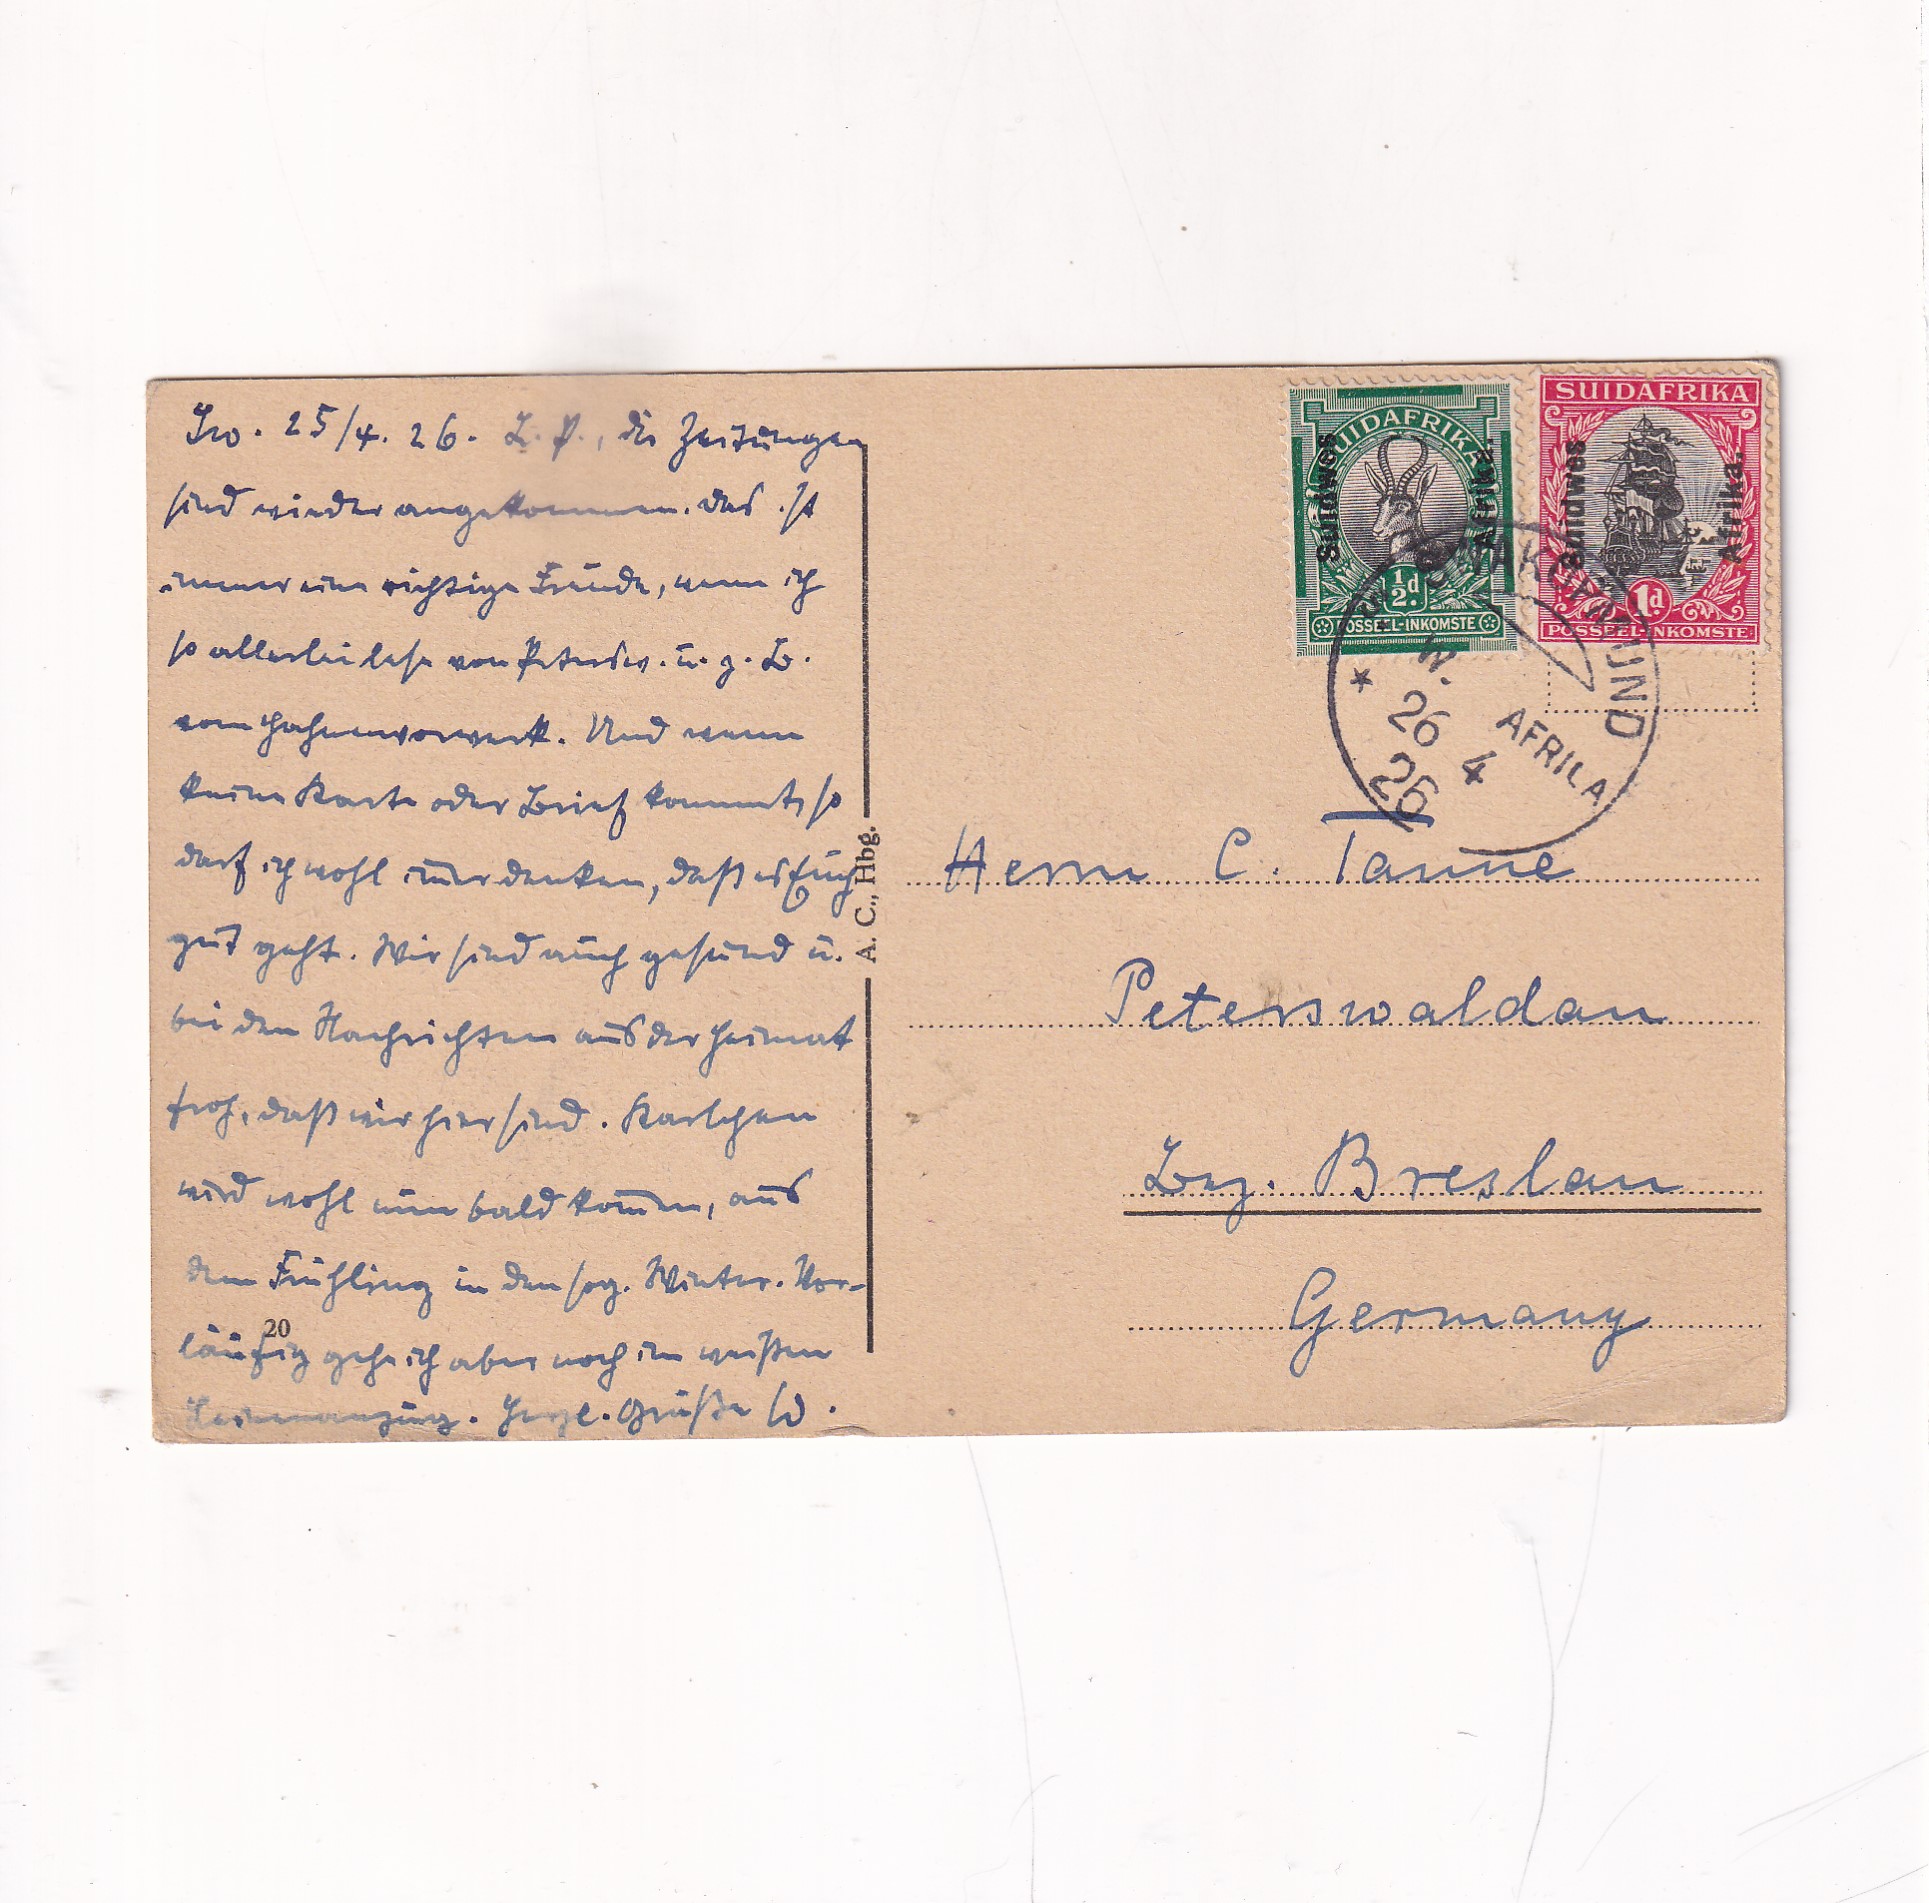 Sw. 25/4. 26. L. P., die Zeitungen
sind wieder angekommen. Das ist
immer eine richtige Freude, wenn ich
so allerlei lese von Petersw. u. z. B.
vom Hahnvorwerk. Und wenn
keine Karte oder Brief kommt, so
darf ich wohl im̅er denken, daß es Euch
gut geht. Wir sind auch gesund u.
bei den Nachrichten aus der Heimat
froh, daß wir hier sind. Karlchen
wird wohl nun bald kom̅en, aus
dem Frühling in den sog. Winter. Vor-
läufig gehe ich aber noch im weißen
Leinenanzug. Herzl. Grüße
20
A. C., Hbg.
SUIDAFRIKA
Suidwes Afrika.
½d.
POSSEEL-INKOMSTE
SUIDAFRIKA
Suidwes Afrika.
1d.
POSSEEL-INKOMSTE.
SWAKOPMUND
S. W. AFRICA
26 4
26
Herrn C. Tanne
Peterswaldau
Bez. Breslau
Germany